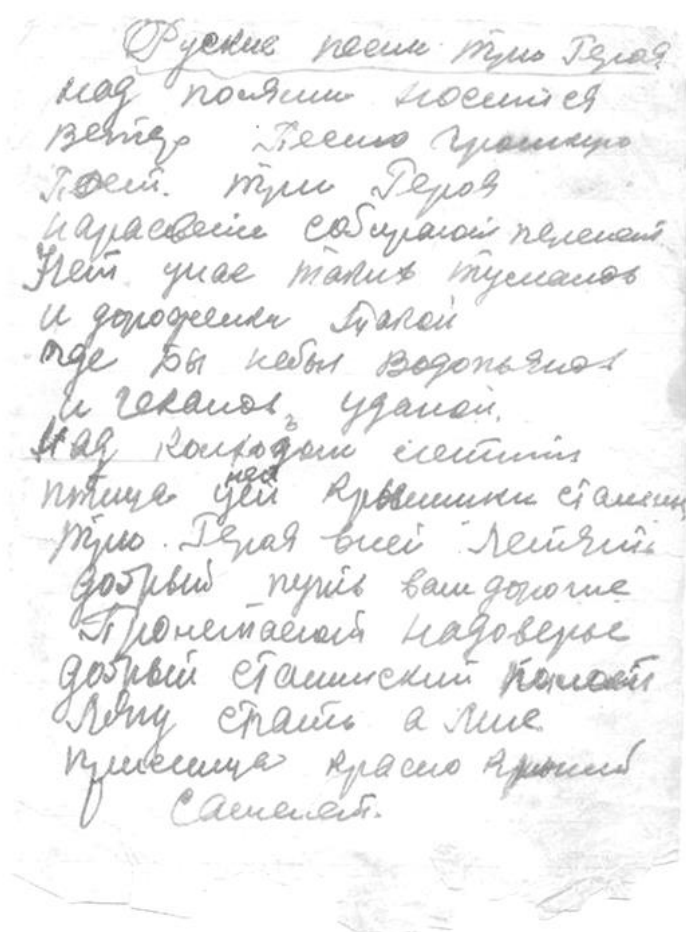 Руские песни три Героя
над полями носится
ветер Песню громкую
Поет. три Героя
нарасвети собирают перелет
Нет унас таких туманов
и дороженки такой
где Бы небыл Водопьянов
и чкалов удалой.
Над колхозом летит
птица уней крылишки стални
три Героя вней летять
добрый путь вам дорогие
Пронетает
добрый сталинский
Лягу спать а мне
присница красно крылий
самелет.